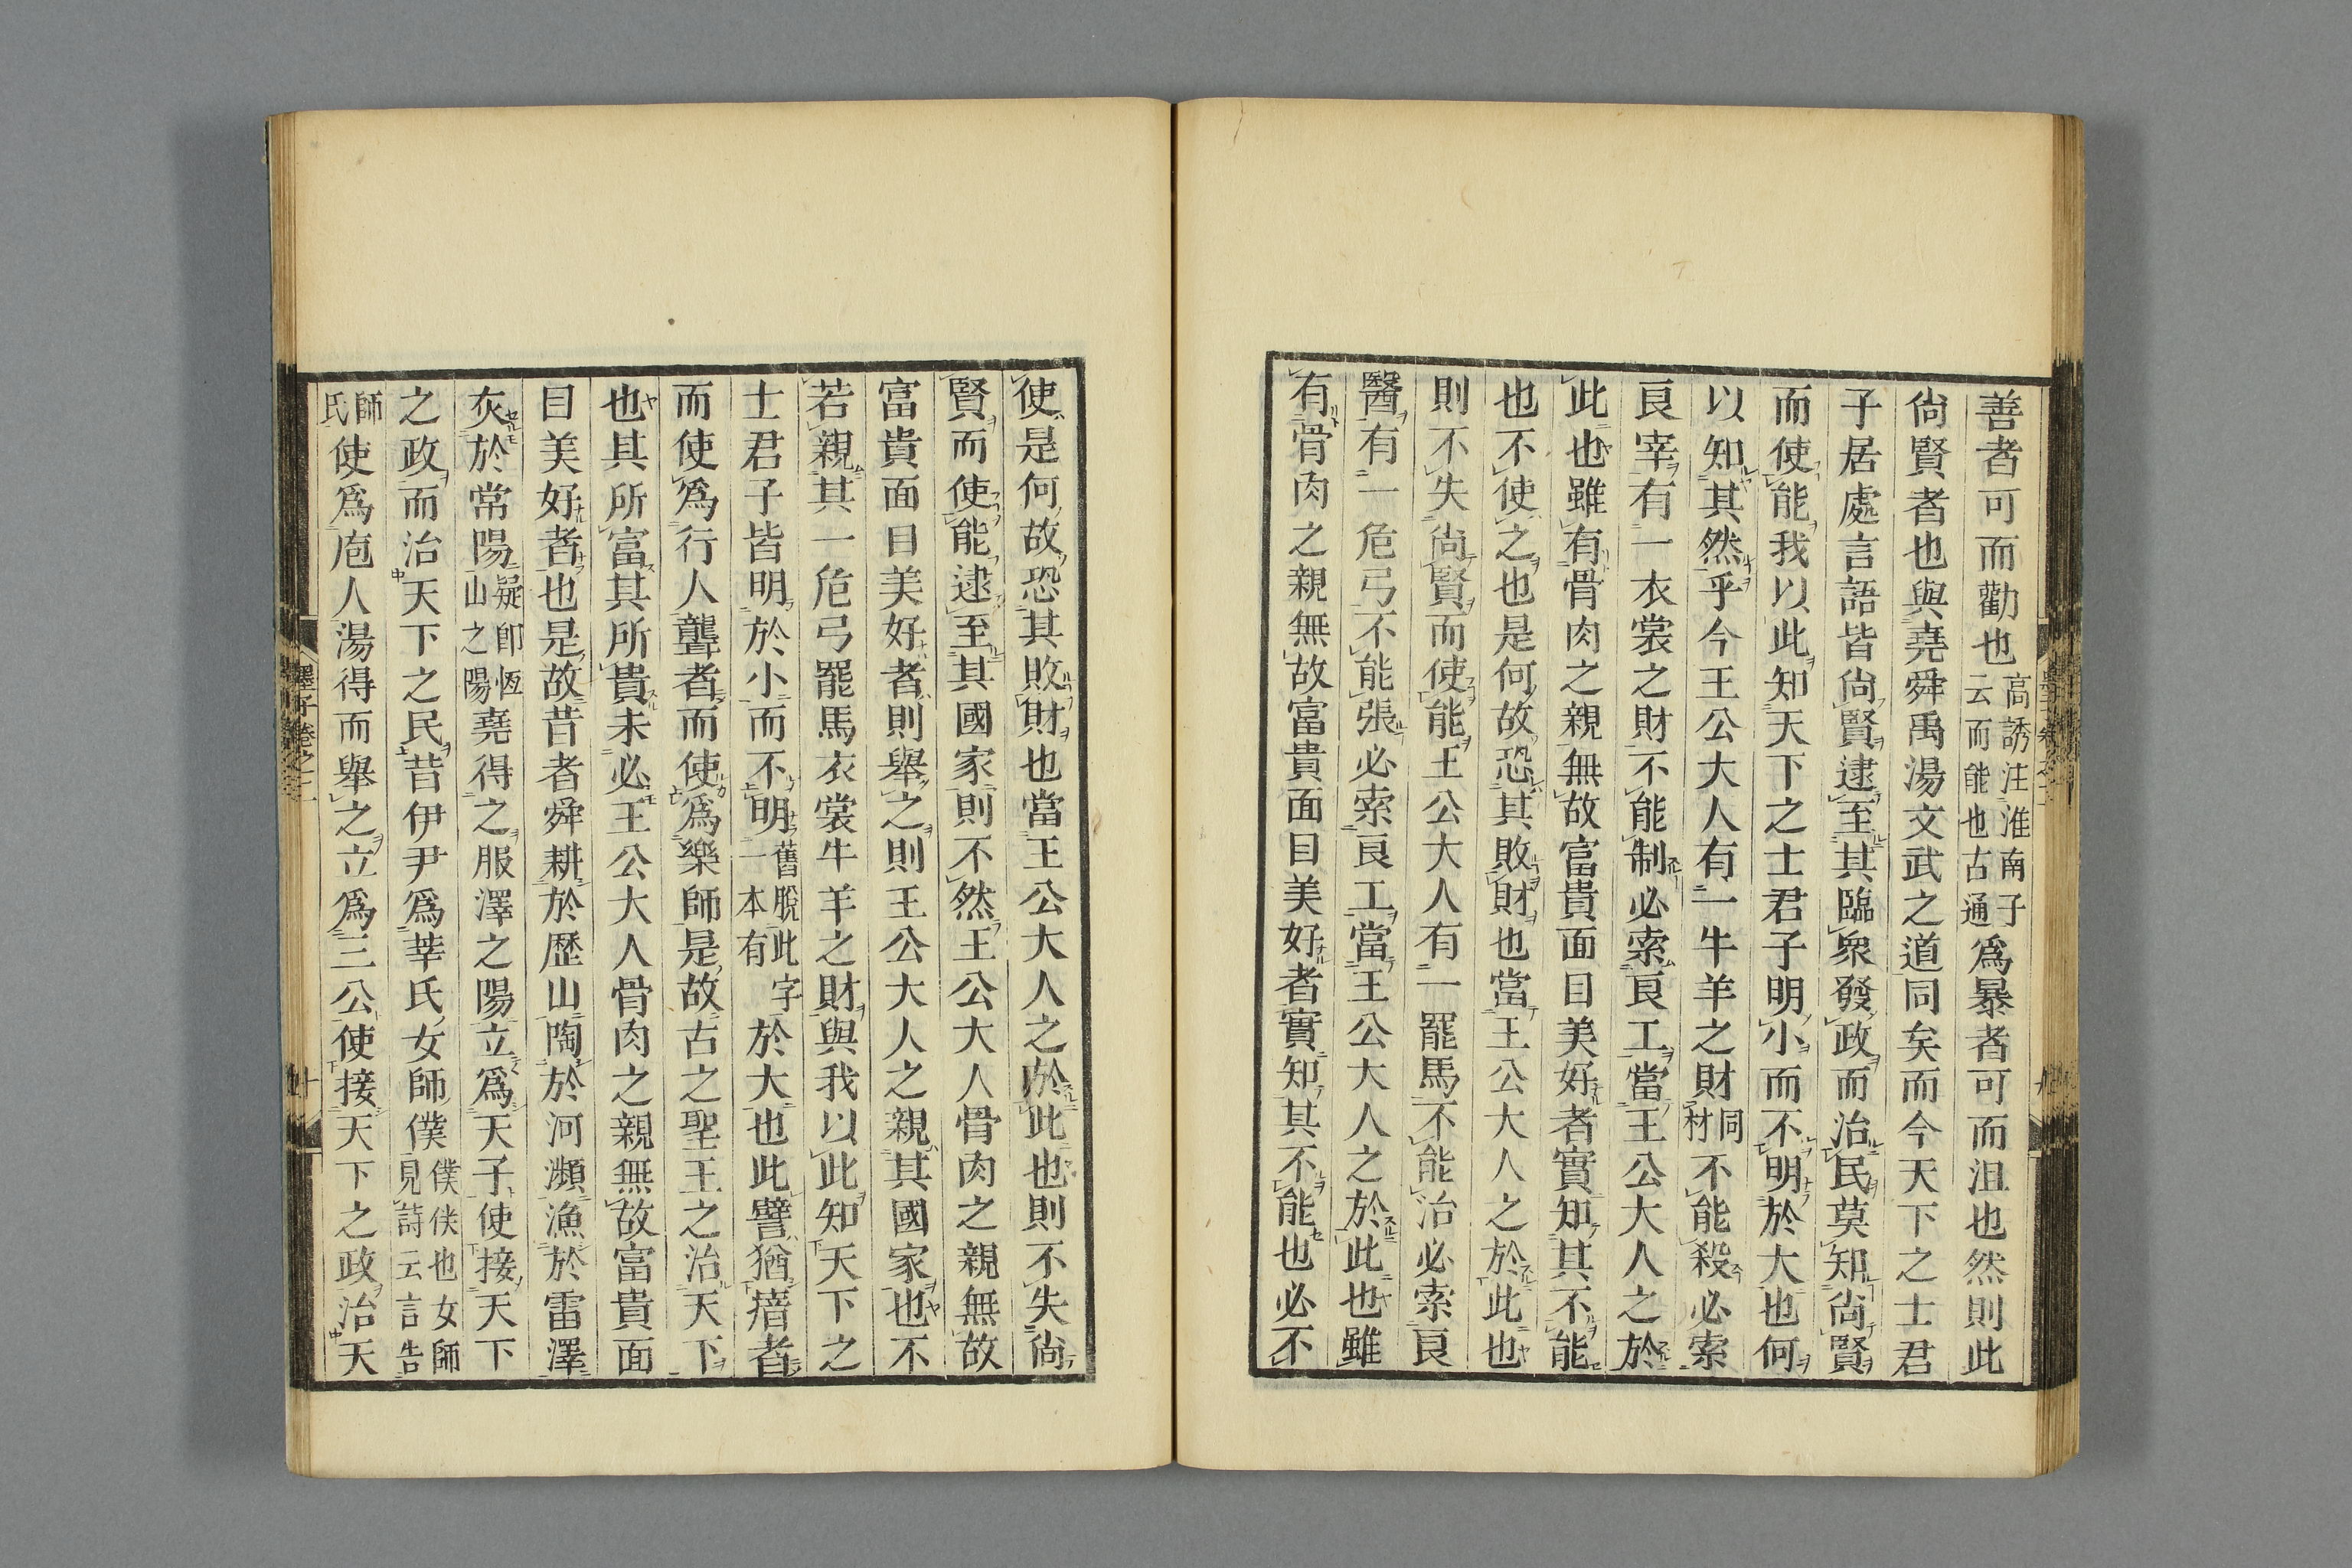 善者可而勸也高誘注淮南子云而能也古通爲暴者可而沮也然則此
尙賢者也與堯舜禹湯文武之道同矣而今天下之士君
子居處言語皆尙賢逮至其臨衆發政而治民莫知尙賢
而使能我以此知天下之士君子明小而不明於大也何
以知其然乎今王公大人有一牛羊之財同材不能殺必索
良宰有一衣裳之財不能制必索良工當王公大人之於
此也雖有骨肉之親無故富貴面目美好者實知其不能
也不使之也是何故恐其敗財也當王公大人之於此也
則不失尙賢而使能王公大人有一罷馬不能治必索良
醫有一危弓不能張必索良工當王公大人之於此也雖
有骨肉之親無故富貴面目美好者實知其不能也必不
使是何故恐其敗財也當王公大人之於此也則不失尙
賢而使能逮至其國家則不然王公大人骨肉之親無故
富貴面目美好者則舉之則王公大人之親其國家也不
若親其一危弓罷馬衣裳牛羊之財與我以此知天下之
士君子皆明於小而不明舊脫此字一本有於大也此譬猶瘖者
而使爲行人聾者而使爲樂師是故古之聖王之治天下
也其所富其所貴未必王公大人骨肉之親無故富貴面
目美好者也是故昔者舜耕於歷山陶於河瀕漁於雷澤
灰於常陽疑卽恆山之陽堯得之服澤之陽立爲天子使接天下
之政而治天下之民昔伊尹爲莘氏女師僕僕佚也女師見詩云言告
師氏使爲庖人湯得而舉之立爲三公使接天下之政治天
墨子卷之二
十